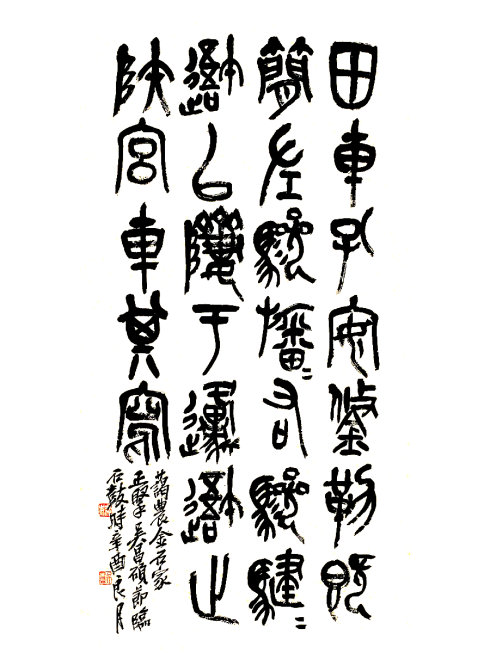 田車孔安鋚勒既
簡左驂旛=右驂騝=
吾以隮于邍吾止
陕宮車其寫
藹農金石家
正掔吴昌碩節臨
石鼓時辛酉良月